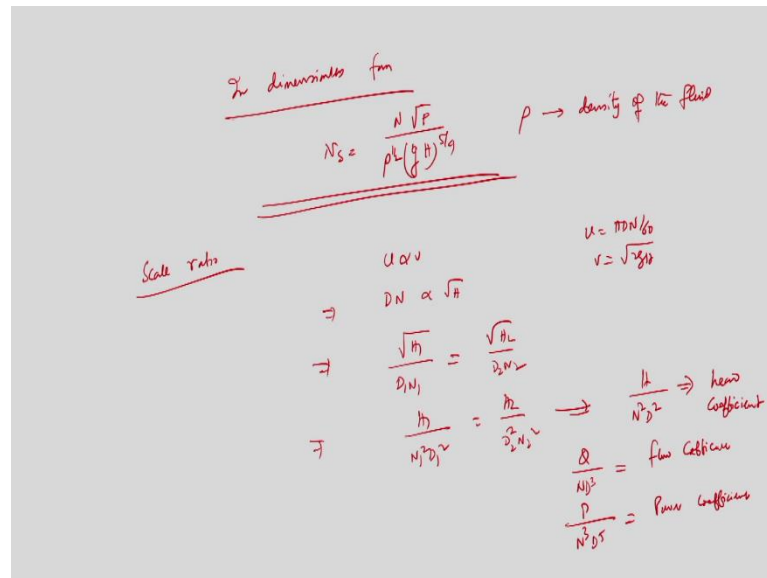 In dimensionless form
Ns = N √P / ρ^1/2 (g H)^5/4
ρ → density of the fluid
Scale ratio
u α v
u = πDN/60
v = √2gH
⇒ DN α √H
⇒ √H1 / D1N1 = √H2 / D2N2
⇒ H1 / N1²D1² = H2 / D2²N2² → H / N²D² ⇒ head coefficient
Q / ND³ = flow
P / N³D⁵ = Power coefficient